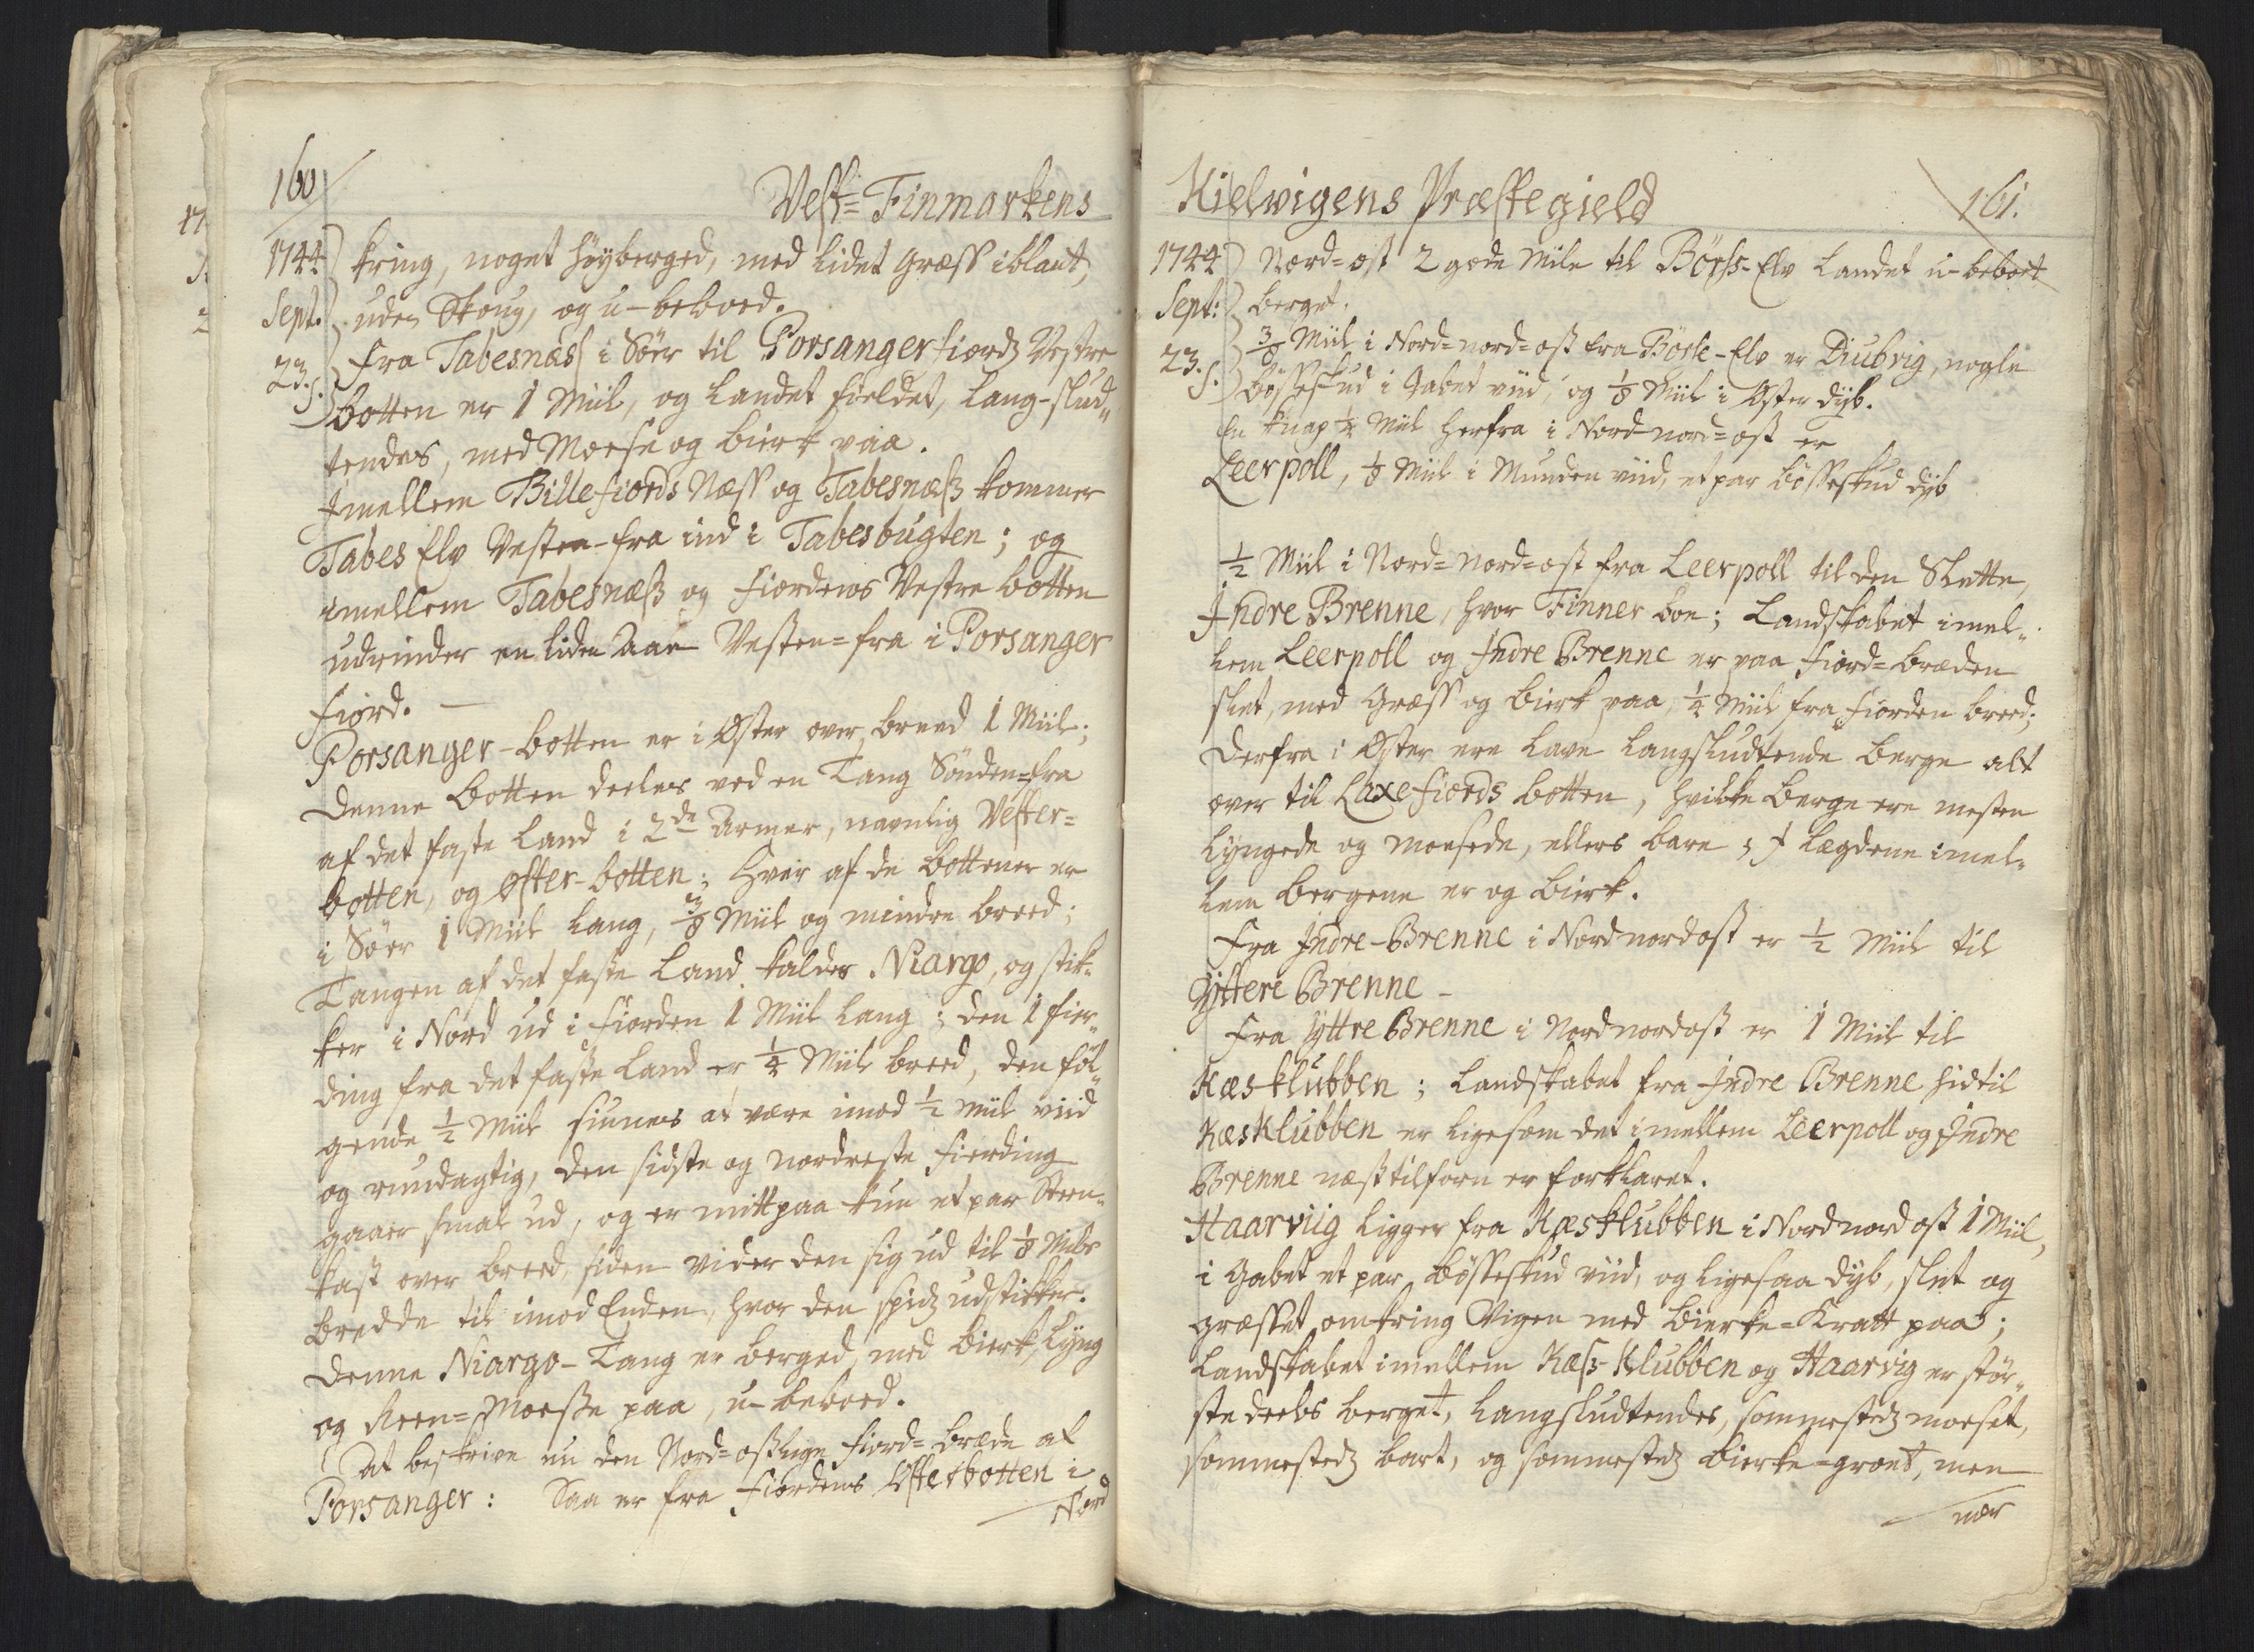 160
Vest-Finmarkens
1744
Sept.
23. f.
kring, noget høyberged, med lidet Græss iblant,
uden Skoug, og u-beboed.
Fra Tabesnæss i Söer til Porsanger fiords Vestre
botten er 1 Miil, og Landet fieldet, Lang-slud„
tendes, med Moese og bierk paa.
Imellem Billefiords Næss og Tabesnæss kommer
Tabes Elv Vesten-fra ind i Tabesbugten; og
imellem Tabesnæss og fiordens Vestre botten
udrinder en liden Aae Vesten=fra i Porsanger
fiord. —
Porsanger-botten er i Øster over, breed 1 Miil;
denne botten deeles ved en Tang Sønden=fra
af det faste Land i 2de Armer, navnlig Vester=
botten, og Øster-botten; hver af de bottener er
i Söer 1 Miil lang, 3/8 Miil og mindre breed;
Tangen af det faste Land kaldes Niargo, og stik„
ker i Nord ud i fiorden 1 Miil lang; den 1 fier„
ding fra det faste Land er 1/4 Miil breed, den föl„
gende 1/2 Miil siunes at være imod 1/2 Miil viid
og rundagtig, den sidste og nordreste fierding
gaaer smal ud, og er mitt paa kun et par Steen„
kast over breed, siden vider den sig ud til 1/8 Miils
bredde til imod Enden, hvor den spids udstikker.
Denne Niargo-Tang er berged, med bierk, Lyng
og Reen=Moesse paa, u-beboed.
At beskrive nu den Nord=ostlige fiord=bræde af
Porsanger: Saa er fra fiordens Østerbotten i
Nord
Kielwigens Præstegield
161.
1744
Sept:
23. f.
Nord=ost 2 gode Mile til Börss-Elv Landet u-beboet
berget.
3/8 Miil i Nord=nord=ost fra Börse-Elv er Diubvig, nogle
bösseskud i Gabet viid, og 1/8 Miil i Øster dyb.
En knap 1/4 Miil herfra i Nord nord=ost er
Leerpoll, 1/8 Miil i Munden viid, et par bösseskud dyb
1/2 Miil i Nord=Nord=ost fra Leerpoll til den Slette,
Indre Brenne, hvor Finner boe; Landskabet imel„
lem Leerpoll og Indre Brenne er paa fiord=bræden
slet, med Græss og bierk paa, 1/4 Miil fra fiorden breed;
derfra i Øster ere Lave Langsludtende berge alt
over til Laxefiords botten, hvilke berge ere mesten
Lyngede og moesede, ellers bare; I Lægdene imel„
lem bergene er og bierk.
Fra Indre-Brenne i Nordnordost er 1/2 Miil til
Yttere Brenne -
Fra Yttre Brenne i Nordnordost er 1 Miil til
Kæsklubben; Landskabet fra Indre Brenne hidtil
Kæsklubben er ligesom det imellem Leerpoll og Indre
Brenne næst tilforn er forklaret.
Haarviig ligger fra Kæsklubben i Nordnordost 1 Miil,
i Gabet et par bösseskud viid, og ligesaa dyb, slet og
græsset omkring Vigen med Bierke=Kratt paa;
Landskabet imellem Kæss-Klubben og Haarvig er stör„
ste deels berget, Langsludtendes, sommesteds moeset,
sommesteds bart, og sommesteds bierke-groet, men
nær